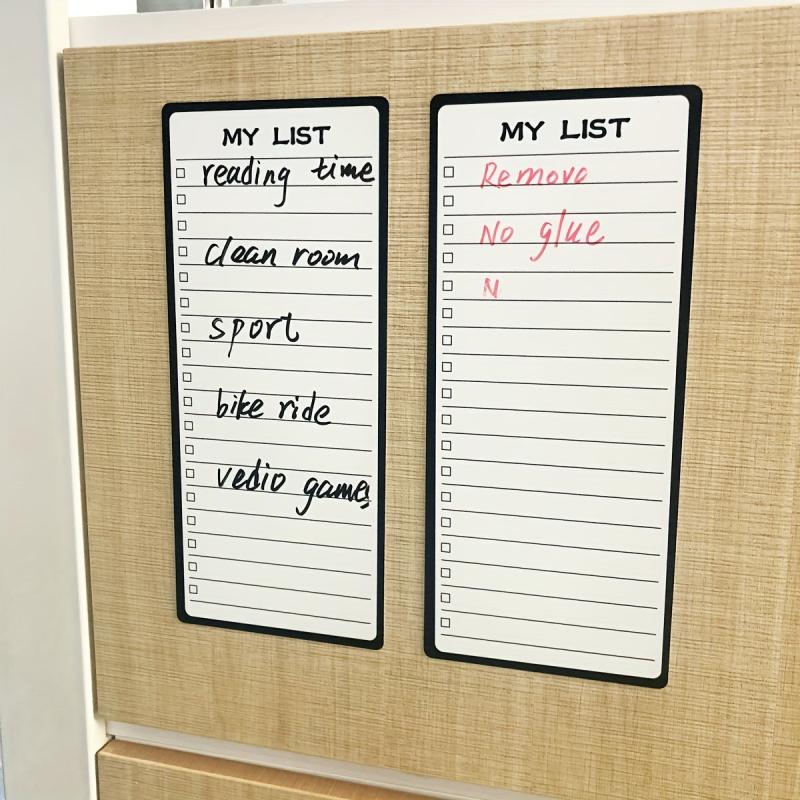 MY LIST
reading time
clean room
sport
bike ride
vedio games
MY LIST
Remove
No glue
N